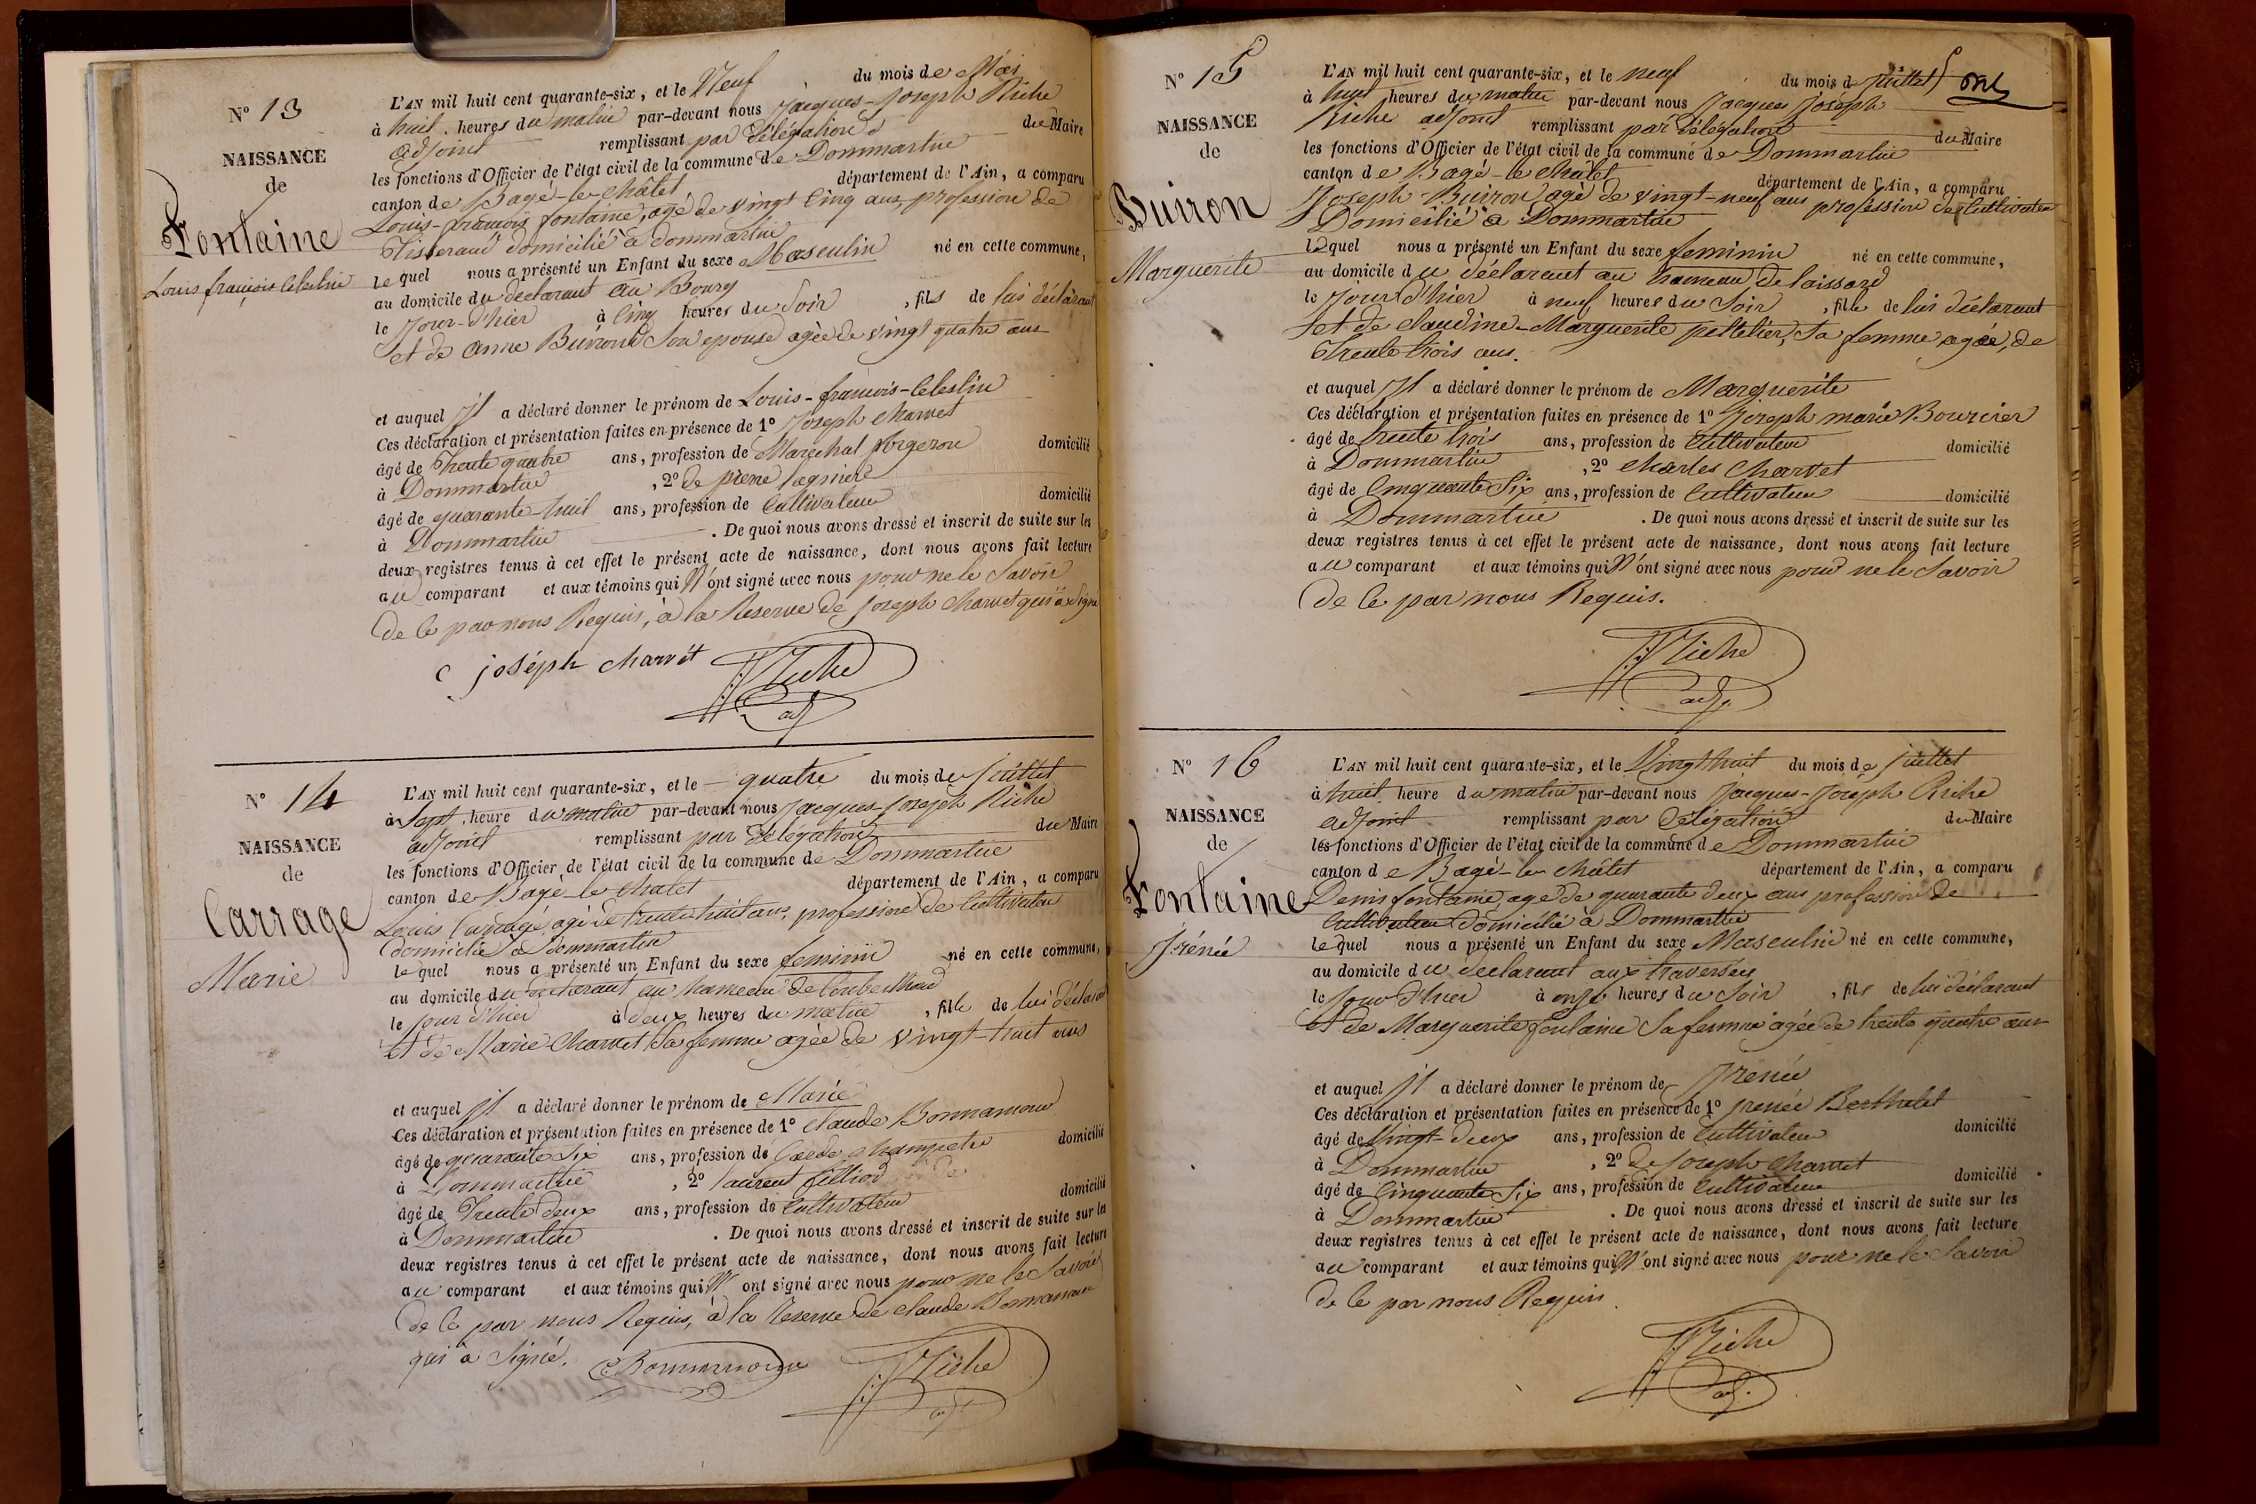 N° 13
NAISSANCE
de
Fontaine
Louis françois Celestin
L'AN mil huit cent quarante-six, et le Neuf du mois de Mai
à huit heures du matin par-devant nous Jacques-Joseph Riche
adjoint remplissant par délégation du Maire
les fonctions d'Officier de l'état civil de la commune de Dommartin
canton de Bagé-le-châtel département de l'Ain, a comparu
Louis-françois fontaine, agé de vingt cinq ans profession de
Tisserand domicilié à dommartin
lequel nous a présenté un Enfant du sexe Masculin né en cette commune,
au domicile du declarant au Bourg
le Jour-d'hier à Cinq heures du Soir, fils de lui déclarant
et de anne Buiron Son epouse agée de vingt quatre ans
et auquel Il a déclaré donner le prénom de Louis-francois-Celestin
Ces déclaration et présentation faites en présence de 1° Joseph Charvet
âgé de Trente quatre ans, profession de Maréchal forgeron domicilié
à Dommartin, 2° de pierre
âgé de quarante-huit ans, profession de Cultivateur domicilié
à Dommartin. De quoi nous avons dressé et inscrit de suite sur les
deux registres tenus à cet effet le présent acte de naissance, dont nous avons fait lecture
au comparant et aux témoins qui N'ont signé avec nous pour ne le Savoir
de ce par nous Requis, à la Reserve de Joseph Charvet qui a Signé
joséph charvét Riche
adj
N° 14
NAISSANCE
de
Carrage
Marie
L'AN mil huit cent quarante-six, et le quatre du mois de Juillet
à Sept heure du matin par-devant nous Jacques-Joseph Riche
adjoint remplissant par délégation du Maire
les fonctions d'Officier de l'état civil de la commune de Dommartin
canton de Bagé-le-Chatel département de l'Ain, a comparu
Louis Carragé, agé de trente huit ans, profession de Cultivateur
domicilié à Dommartin
lequel nous a présenté un Enfant du sexe feminin né en cette commune,
au domicile du declarant au hameau de
le Jour d'hier à deux heures du matin, fille de lui déclarant
et de Marie Charvet Sa femme agée de vingt-huit ans
et auquel Il a déclaré donner le prénom de Marie
Ces déclaration et présentation faites en présence de 1° Claude Bonnamour
âgé de quarante Six ans, profession de Garde champetre domicilié
à Dommartin, 2° laurent fillion
âgé de Trente deux ans, profession de Cultivateur domicilié
à Dommartin. De quoi nous avons dressé et inscrit de suite sur les
deux registres tenus à cet effet le présent acte de naissance, dont nous avons fait lecture
au comparant et aux témoins qui N'ont signé avec nous pour ne le Savoir
de ce par nous Requis, à la Reserve de Claude Bonnamour
qui a Signé. Bonnamour Riche
adj
N° 15
NAISSANCE
de
Buiron
Marguerite
L'AN mil huit cent quarante-six, et le neuf du mois de Juillet
à huit heures du matin par-devant nous Jacques Joseph
Riche adjoint remplissant par délégation du Maire
les fonctions d'Officier de l'état civil de la commune de Dommartin
canton de Bagé-le-châtel département de l'Ain, a comparu
Joseph Buiron agé de vingt-neuf ans profession de Cultivateur
Domicilié à Dommartin
lequel nous a présenté un Enfant du sexe feminin né en cette commune,
au domicile du déclarant au hameau de loissard
le Jour d'hier à neuf heures du Soir, fille de lui déclarant
et de Claudine-Marguerite pelletier, Sa femme agée, de
Trente trois ans.
et auquel Il a déclaré donner le prénom de Marguerite
Ces déclaration et présentation faites en présence de 1° Joseph marie Bourcier
âgé de trente trois ans, profession de Cultivateur domicilié
à Dommartin, 2° Charles Charvet
âgé de Cinquante Six ans, profession de Cultivateur domicilié
à Dommartin. De quoi nous avons dressé et inscrit de suite sur les
deux registres tenus à cet effet le présent acte de naissance, dont nous avons fait lecture
au comparant et aux témoins qui N'ont signé avec nous pour ne le Savoir
de ce par nous Requis.
Riche
adj.
N° 16
NAISSANCE
de
Fontaine
Irénée
L'AN mil huit cent quarante-six, et le Vingt huit du mois de Juillet
à huit heure du matin par-devant nous Jacques-Joseph Riche
adjoint remplissant par délégation du Maire
les fonctions d'Officier de l'état civil de la commune de Dommartin
canton de Bagé-le-châtel département de l'Ain, a comparu
Denis fontaine, agé de quarante deux ans profession de
Cultivateur domicilié à Dommartin
lequel nous a présenté un Enfant du sexe Masculin né en cette commune,
au domicile du declarant aux traversées
le Jour d'hier à onze heures du Soir, fils de lui déclarant
et de Marguerite fontaine Sa femme agée de trente quatre ans
et auquel Il a déclaré donner le prénom de Irenée
Ces déclaration et présentation faites en présence de 1° Irenée Berthelet
âgé de Vingt-deux ans, profession de Cultivateur domicilié
à Dommartin, 2° de Joseph Charvet
âgé de Cinquante Six ans, profession de Cultivateur domicilié
à Dommartin. De quoi nous avons dressé et inscrit de suite sur les
deux registres tenus à cet effet le présent acte de naissance, dont nous avons fait lecture
au comparant et aux témoins qui N'ont signé avec nous pour ne le Savoir
de ce par nous Requis
Riche
adj.